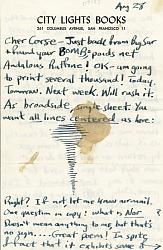 Aug 28
CITY LIGHTS BOOKS
261 COLUMBUS AVENUE, SAN FRANCISCO 11
Cher Corso — Just back from Big Sur
+ found your BOMB
OK — am going
to print several thousand! Today.
Tomorrow. Next week. Will rush it.
As broadside, single sheet. You
want all lines centered, as here:
Right? If not let me know airmail.
One question on copy: what is
Doesn't mean anything to me, but that's
no sign..... Great poem! In spite
of fact that it exhibits some